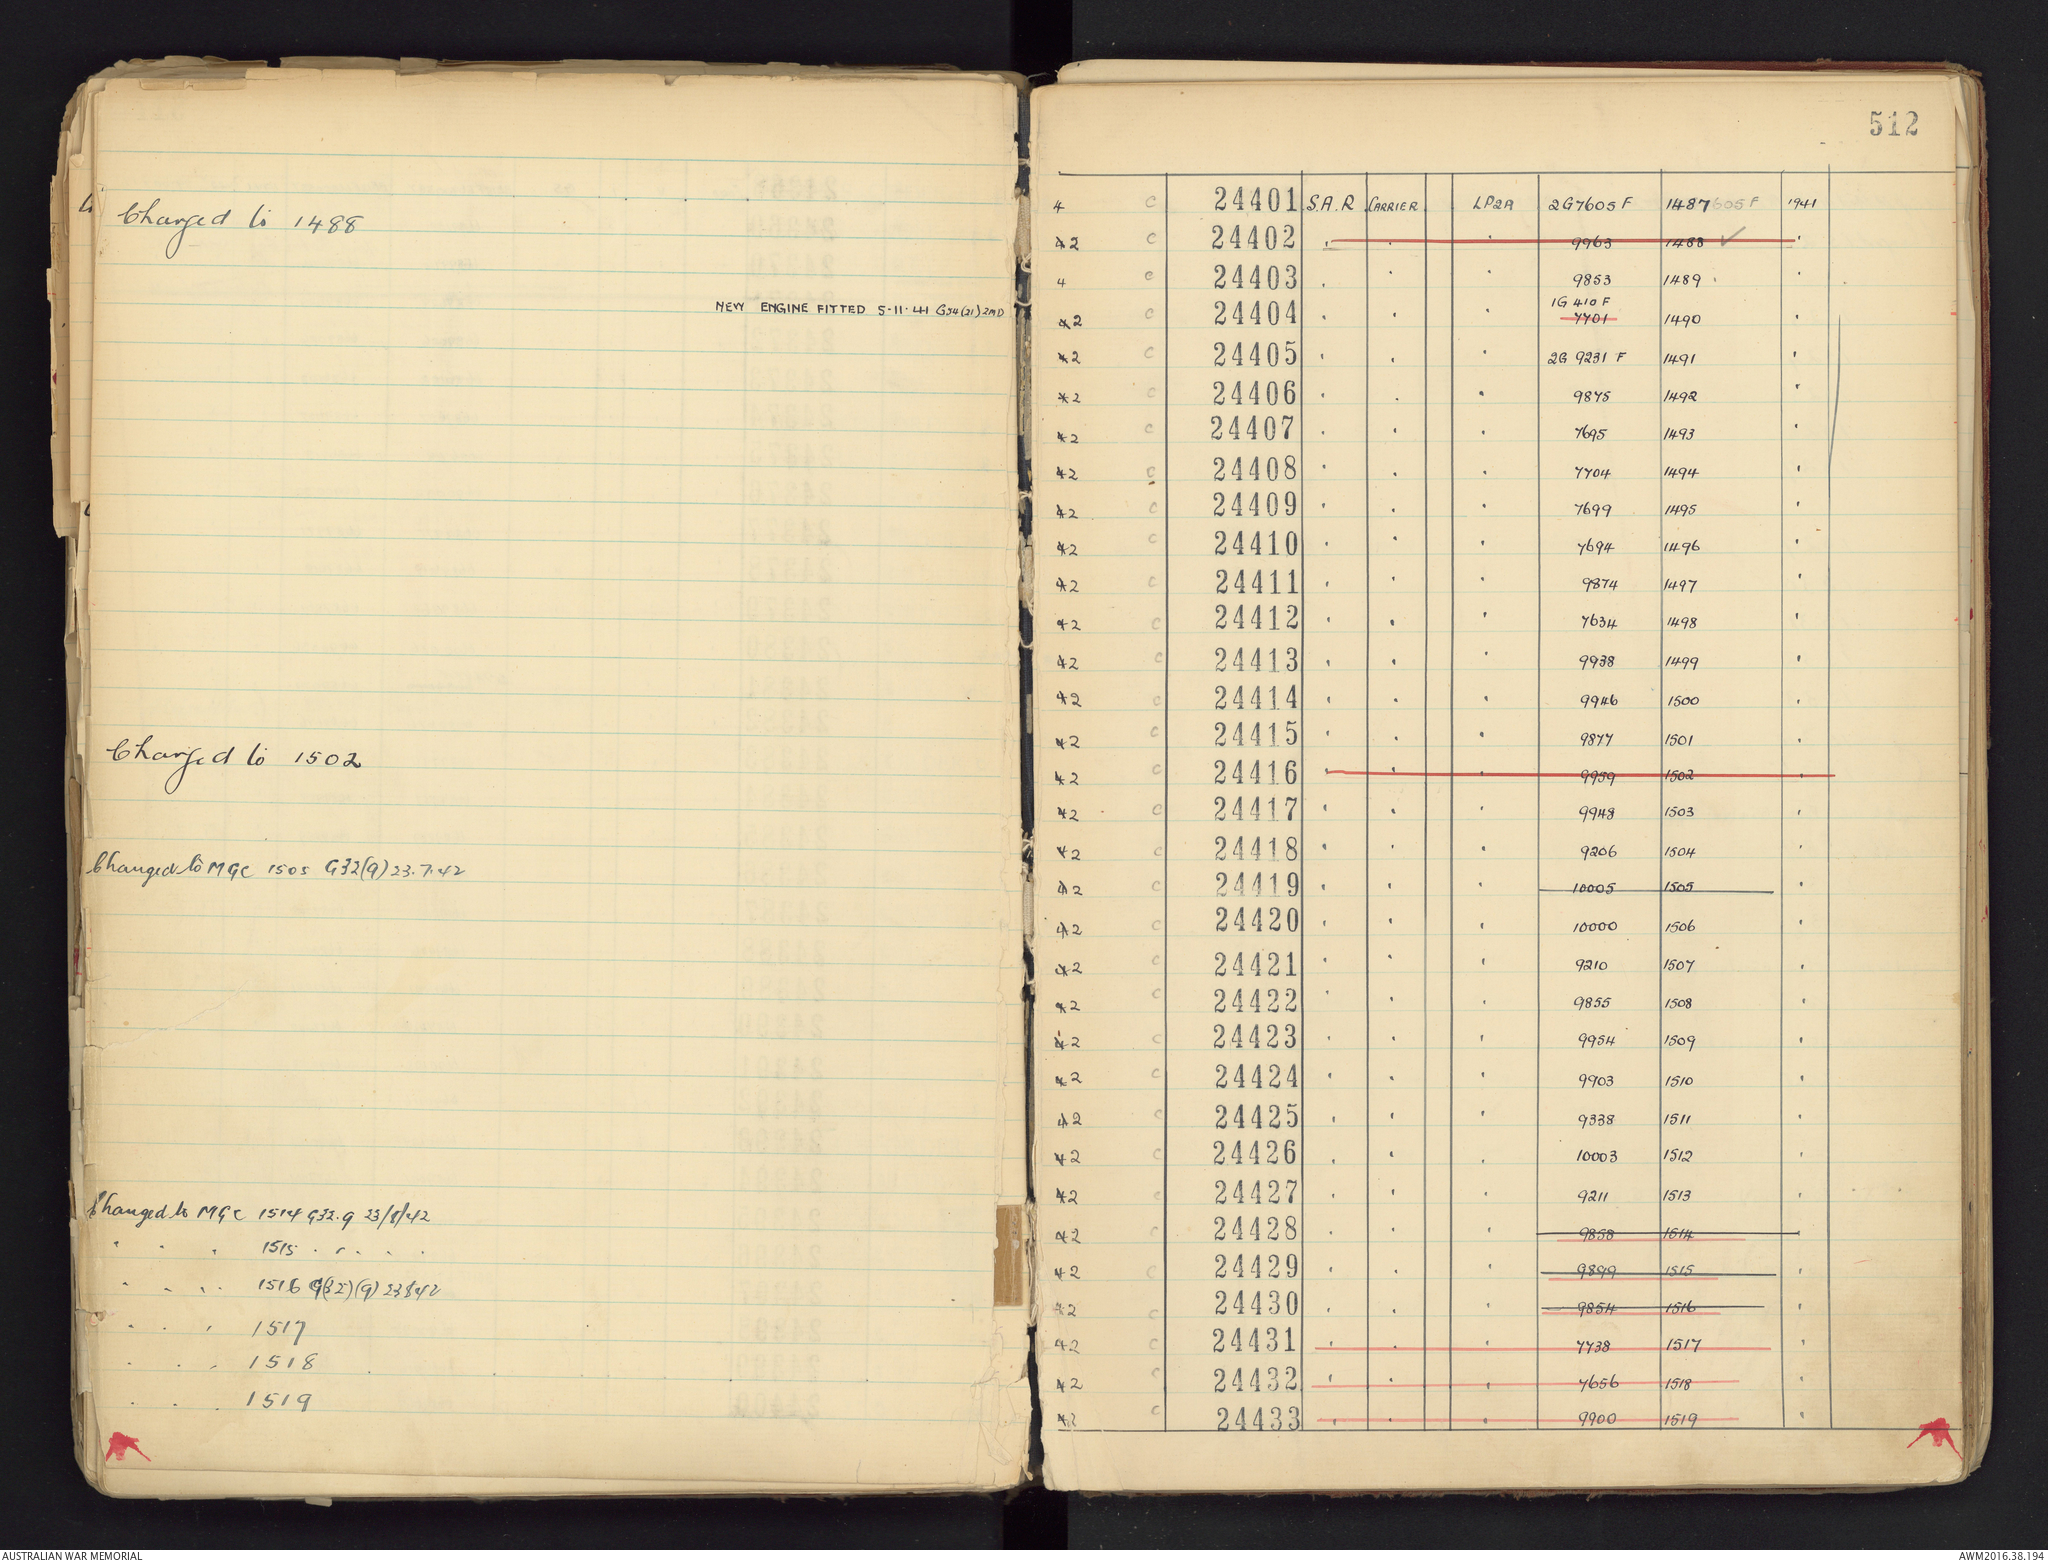 Changed to 1488
NEW ENGINE FITTED 5-11-41 G54(21) 2MD
Changed to 1502
Changed to MGC 1505 G32(9) 23.7.42
Changed to MGC 1514 G32.9 23/8/42
" " " 1515 . . . . .
" " " 1516 G(32)(9) 23842
" " " 1517
" " " 1518
" " " 1519
512
4 C 24401 S.A.R CARRIER LP2A 2G7605F 1487 605F 1941
42 C 24402 " " " 9963 1488 ✓ "
4 C 24403 " " " 9853 1489 "
1G 410 F
42 C 24404 " " " 7701 1490 "
42 C 24405 " " " 2G 9231 F 1491 "
42 C 24406 " " " 9875 1492 "
42 C 24407 " " " 7695 1493 "
42 C 24408 " " " 7704 1494 "
42 C 24409 " " " 7699 1495 "
42 C 24410 " " " 7694 1496 "
42 C 24411 " " " 9874 1497 "
42 C 24412 " " " 7634 1498 "
42 C 24413 " " " 9938 1499 "
42 C 24414 " " " 9946 1500 "
42 C 24415 " " " 9877 1501 "
42 C 24416 " " " 9959 1502 "
42 C 24417 " " " 9948 1503 "
42 C 24418 " " " 9206 1504 "
42 C 24419 " " " 10005 1505 "
42 C 24420 " " " 10000 1506 "
42 C 24421 " " " 9210 1507 "
42 C 24422 " " " 9855 1508 "
42 C 24423 " " " 9954 1509 "
42 C 24424 " " " 9903 1510 "
42 C 24425 " " " 9338 1511 "
42 C 24426 " " " 10003 1512 "
42 C 24427 " " " 9211 1513 "
42 C 24428 " " " 9858 1514 "
42 C 24429 " " " 9899 1515 "
42 C 24430 " " " 9854 1516 "
42 C 24431 " " " 7738 1517 "
42 C 24432 " " " 7656 1518 "
42 C 24433 " " " 9900 1519 "
AUSTRALIAN WAR MEMORIAL
AWM2016.38.194